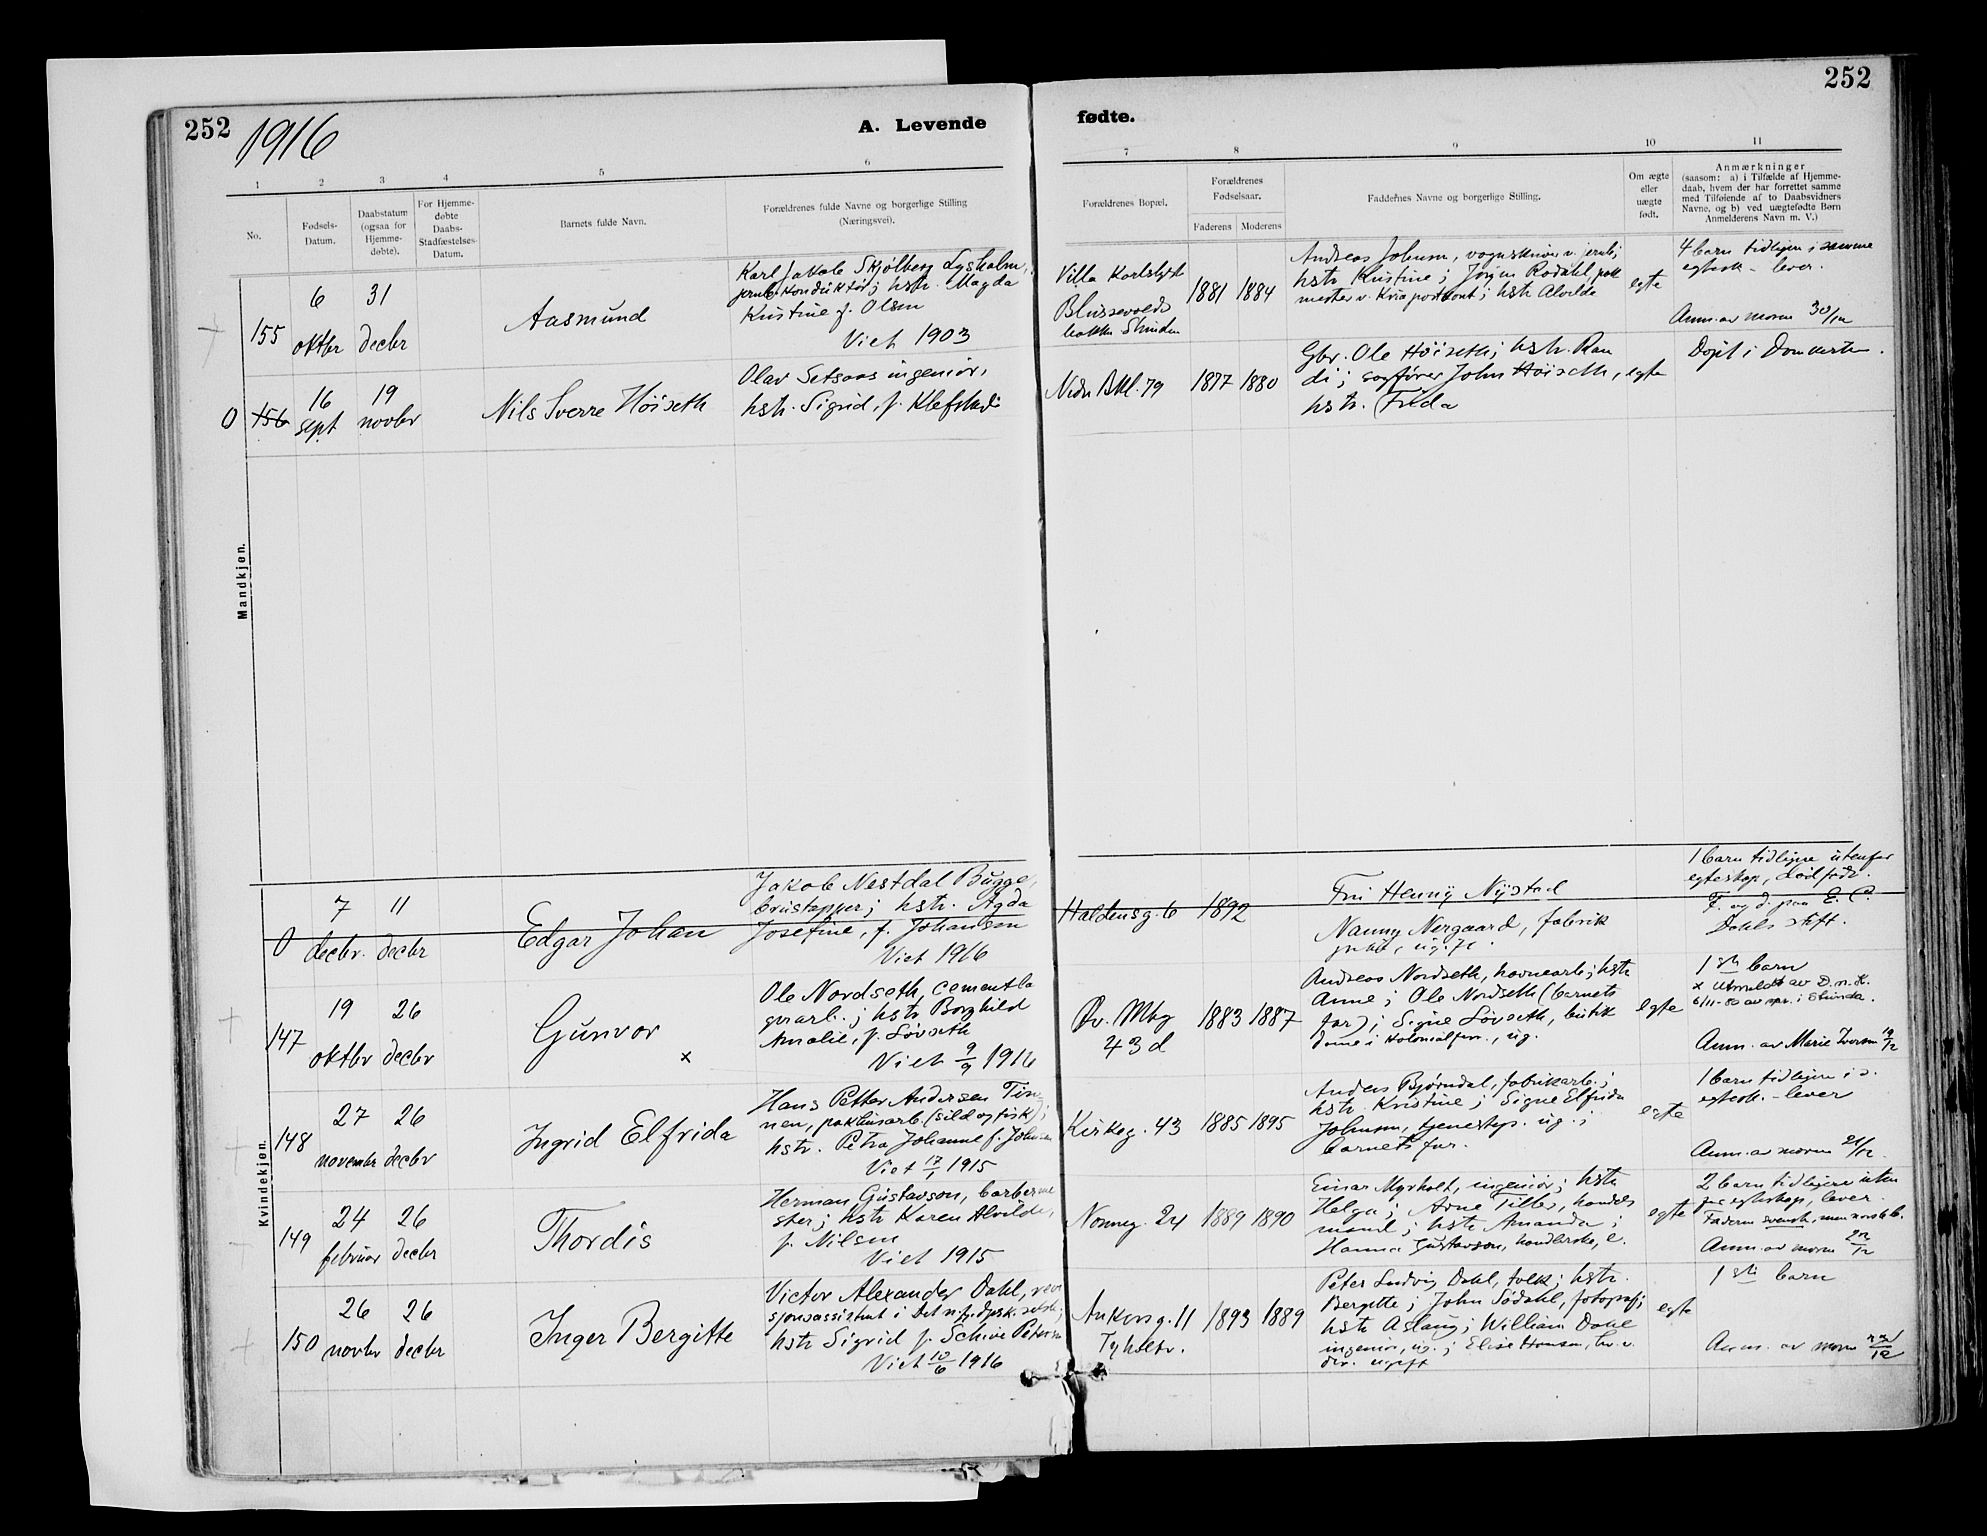 252
1916
A. Levende
fødte.
252
1
2
3
4
5
6
7
8
9
10
11
No.
Fødsels-
Datum.
Daabsdatum
(ogsaa for
Hjemme-
døbte).
For Hjemme-
døbte
Daabs-
Stadfæstelses-
Datum.
Barnets fulde Navn.
Forældrenes fulde Navne og borgerlige Stilling
(Næringsvei).
Forældrenes Bopæl.
Forældrenes
Fødselsaar.
Faderens
Moderens
Faddernes Navne og borgerlige Stilling.
Om ægte
eller
uægte
født.
Anmærkninger
(saasom: a) i Tilfælde af Hjemme-
daab, hvem der har forrettet samme
med Tilføiende af to Daabsvidners
Navne, og b) ved uægtefødte Børn
Anmelderens Navn m. V.)
Mandkjøn.
155
6
oktbr
31
decbr
Aasmund
Karl Jakob Skjølberg Lysholm,
jernb. konduktør; hstr. Magda
Kristine f. Olsen
Viet 1903
Villa Karlslyst
Blussevolds
bakken Strinden
1881
1884
Andreas Johnsen, vognskriver v. jernb;
hstr. Kristine; Jørgen Rødahl, pak
mester v. postkont; hstr Alvilde
egte
4 barn tidligere i samme
egtesk - lever.
Anm. av moren 30/12
0
156
16
sept
19
novbr
Nils Sverre Høiseth
Olav Setsaas ingeniør,
hstr. Sigrid, f. Klefstad
Nedr Bkl. 79
1877
1880
Gbr. Ole Høiseth; hstr. Ran
di; sagfører John Høiseth,
hstr. Frida
egte
Døpt i Domkirken.
Kvindekjøn.
0
7
decbr.
11
decbr
Edgar Johan
Jakob Nestdal Bugge,
brustapper; hstr. Agda
Josefine, f. Johansen
Viet 1916
Haldensg. 6
1892
Fru Henny Nystad
Nanny Nergaard, fabrik
1 barn tidligere utenfor
egteskap, dødfødt.
F. og d. paa E. C.
Dahls stift.
147
19
oktbr
26
decbr
Gunvor
x
Ole Nordseth, cementla
gerarb.; hstr Borghild
Amalie, f. Løvseth
Viet 9/9 1916
Øv. Mbg
43 d
1883
1887
Andreas Nordseth, havnearb; hstr
Anne; Ole Nordseth (barnets
far); Signe Løvseth, butik
dame i kolonialforr., ug.
egte
1ste barn
x Utmeldt av D.n.K.
6/11-50 av spr. i Strinda.
Anm. av Marie Iversen 19/12
148
27
novembr
26
decbr
Ingrid Elfrida
Hans Petter Andersen Tin
nen, pakhusarb. (sild og fisk);
hstr. Petra Johanne f. Johnsen
Viet 17/1 1915
Kirkeg. 43
1885
1895
Anders Bjørndal, fabrikarb.;
hstr. Kristine; Signe Elfrida
Johnsen, tjenestep. ug.;
barnets far.
egte
1 barn tidligere i s.
egtesk. - lever
Anm. av moren 21/12.
149
24
februar
26
decbr
Thordis
Herman Gustavson, barberme
ster; hstr Karen Alvilde,
f. Nilsen
Viet 1915
Nonneg. 24
1889
1890
Einar Myrholt, ingeniør; hstr
Helga; Arne Tiller, handels
mand; hstr Amanda;
Hanna Gustavson, handlerske, e.
egte
2 barn tidligere uten
for egteskap, lever.
Faderen svensk, men norsk b.
Anm. av moren 22/12
150
26
novbr
26
decbr
Inger Bergitte
Victor Alexander Dahl, revi
sjonsassistent i Det n.fj. dpsk. selsk;
hstr Sigrid f. Schive Petersen
Viet 10/6 1916
Ankersg. 11
Tyholtv.
1893
1889
Peter Ludvig Dahl, tolk; hstr.
Bergitte; John Sødahl, fotograf;
hstr Aslaug; William Dahl
ingeniør, ug.; Elise Hansen,
ugift
egte
1ste barn
Anm. av moren 22/12